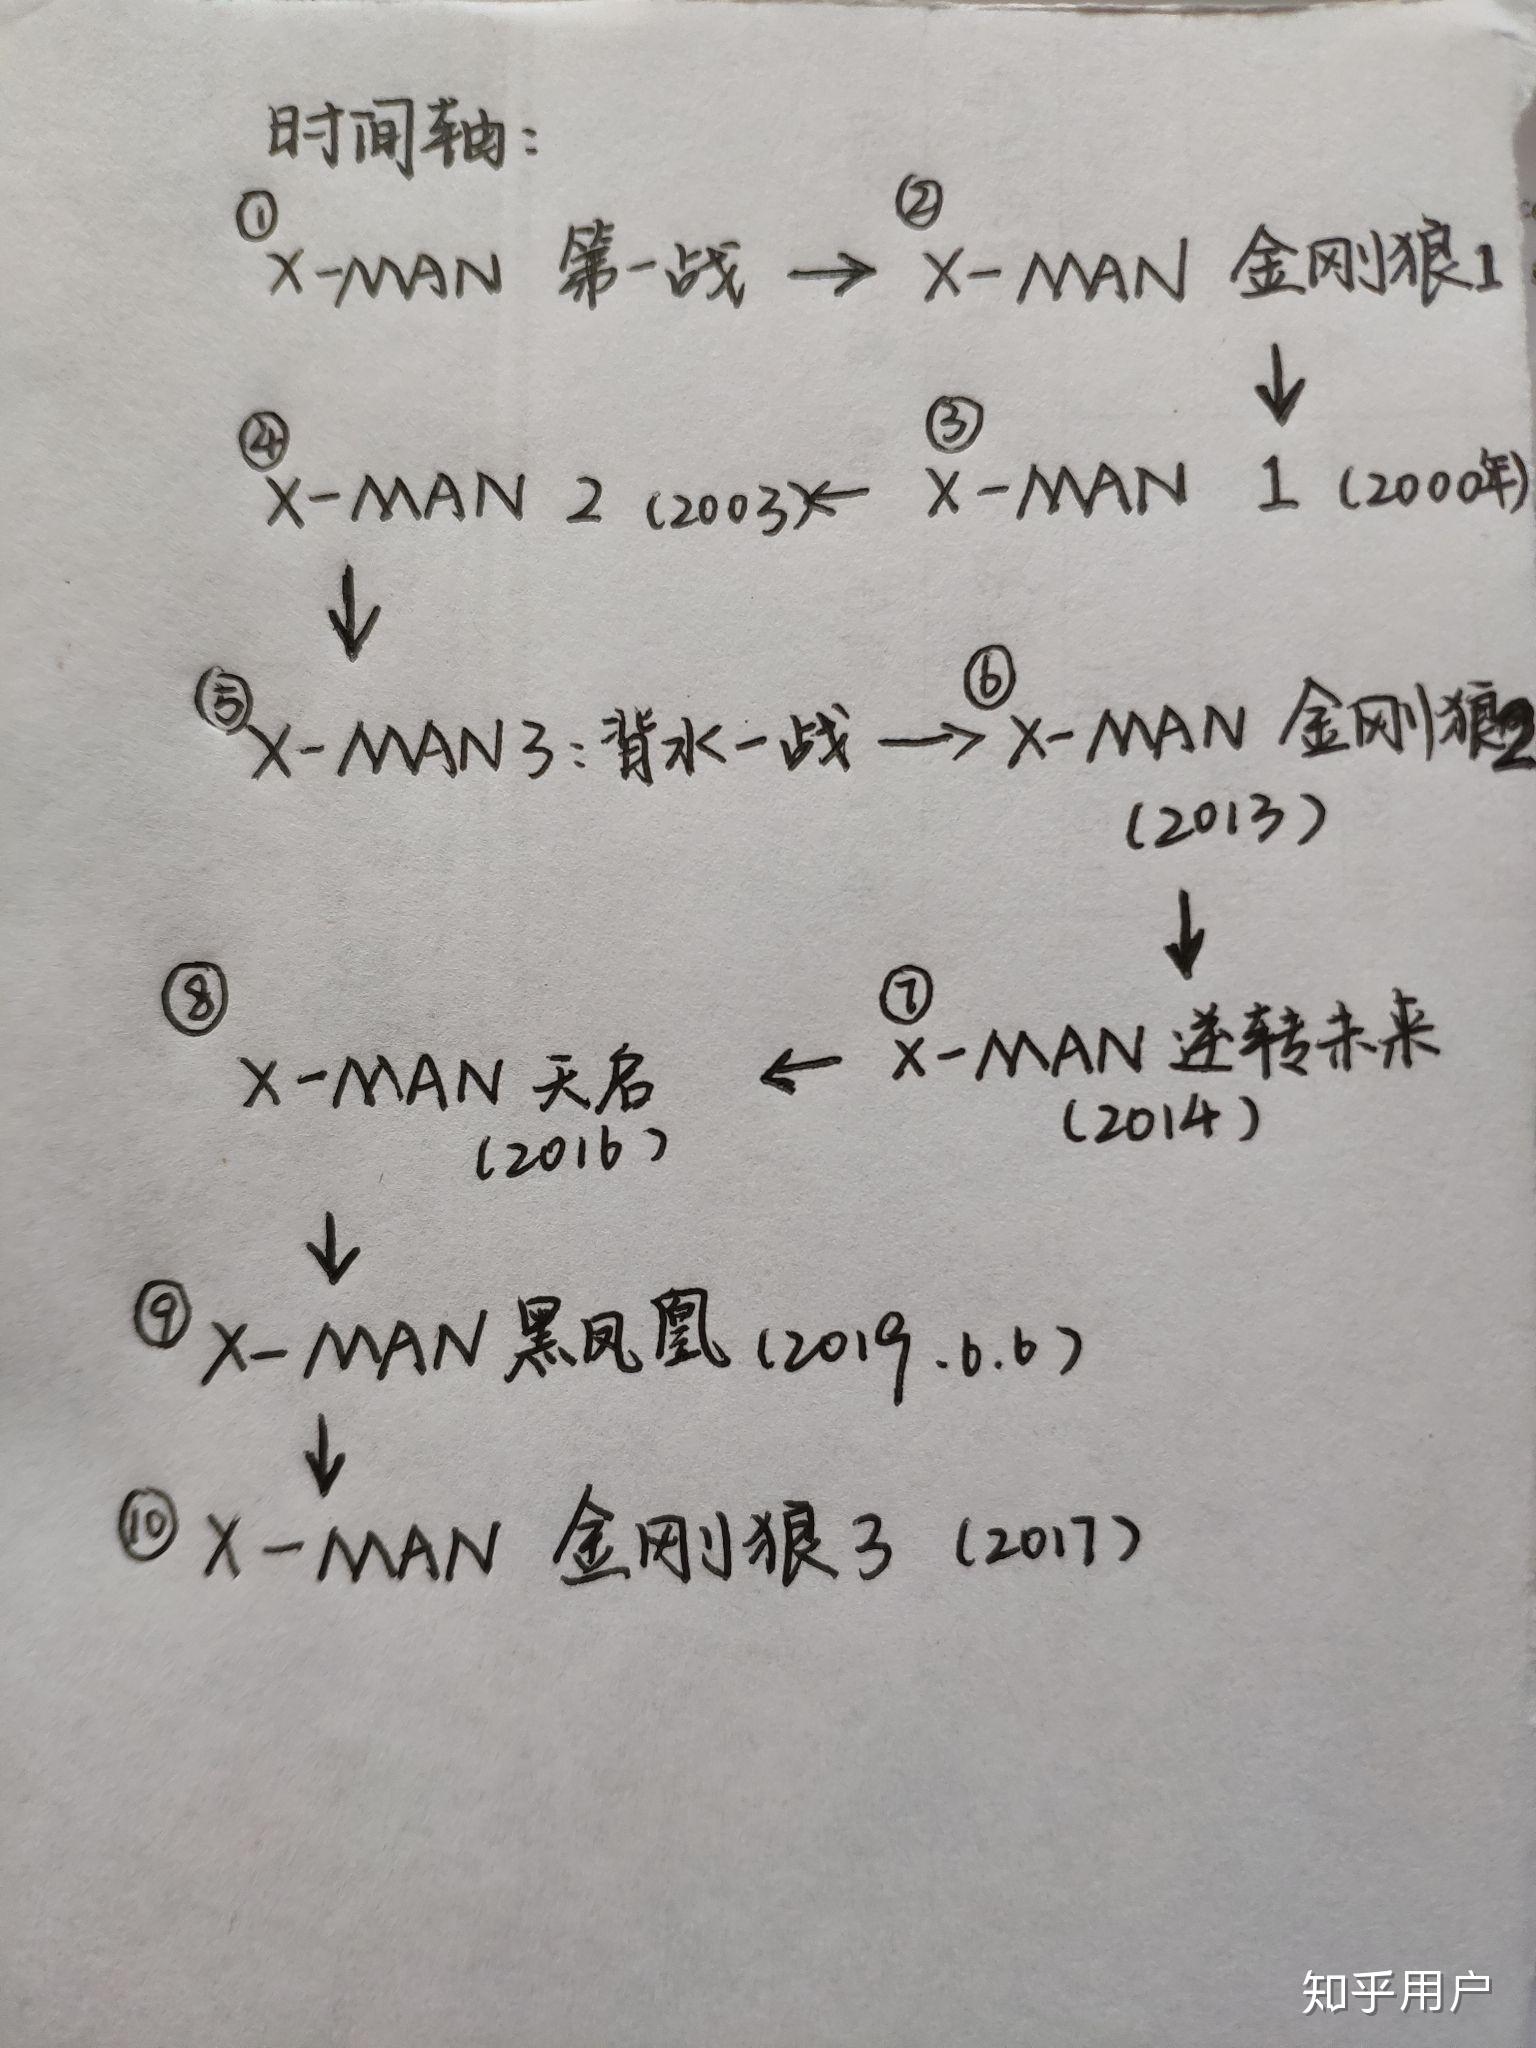 时间轴：
① X-MAN 第一战 → ② X-MAN 金刚狼1
↓
④ X-MAN 2 (2003) ← ③ X-MAN 1 (2000年)
↓
⑤ X-MAN3：背水一战 → ⑥ X-MAN 金刚狼2
(2013)
↓
⑧ X-MAN 天启 ← ⑦ X-MAN 逆转未来
(2016) (2014)
↓
⑨ X-MAN 黑凤凰 (2019.6.6)
↓
⑩ X-MAN 金刚狼3 (2017)
知乎用户